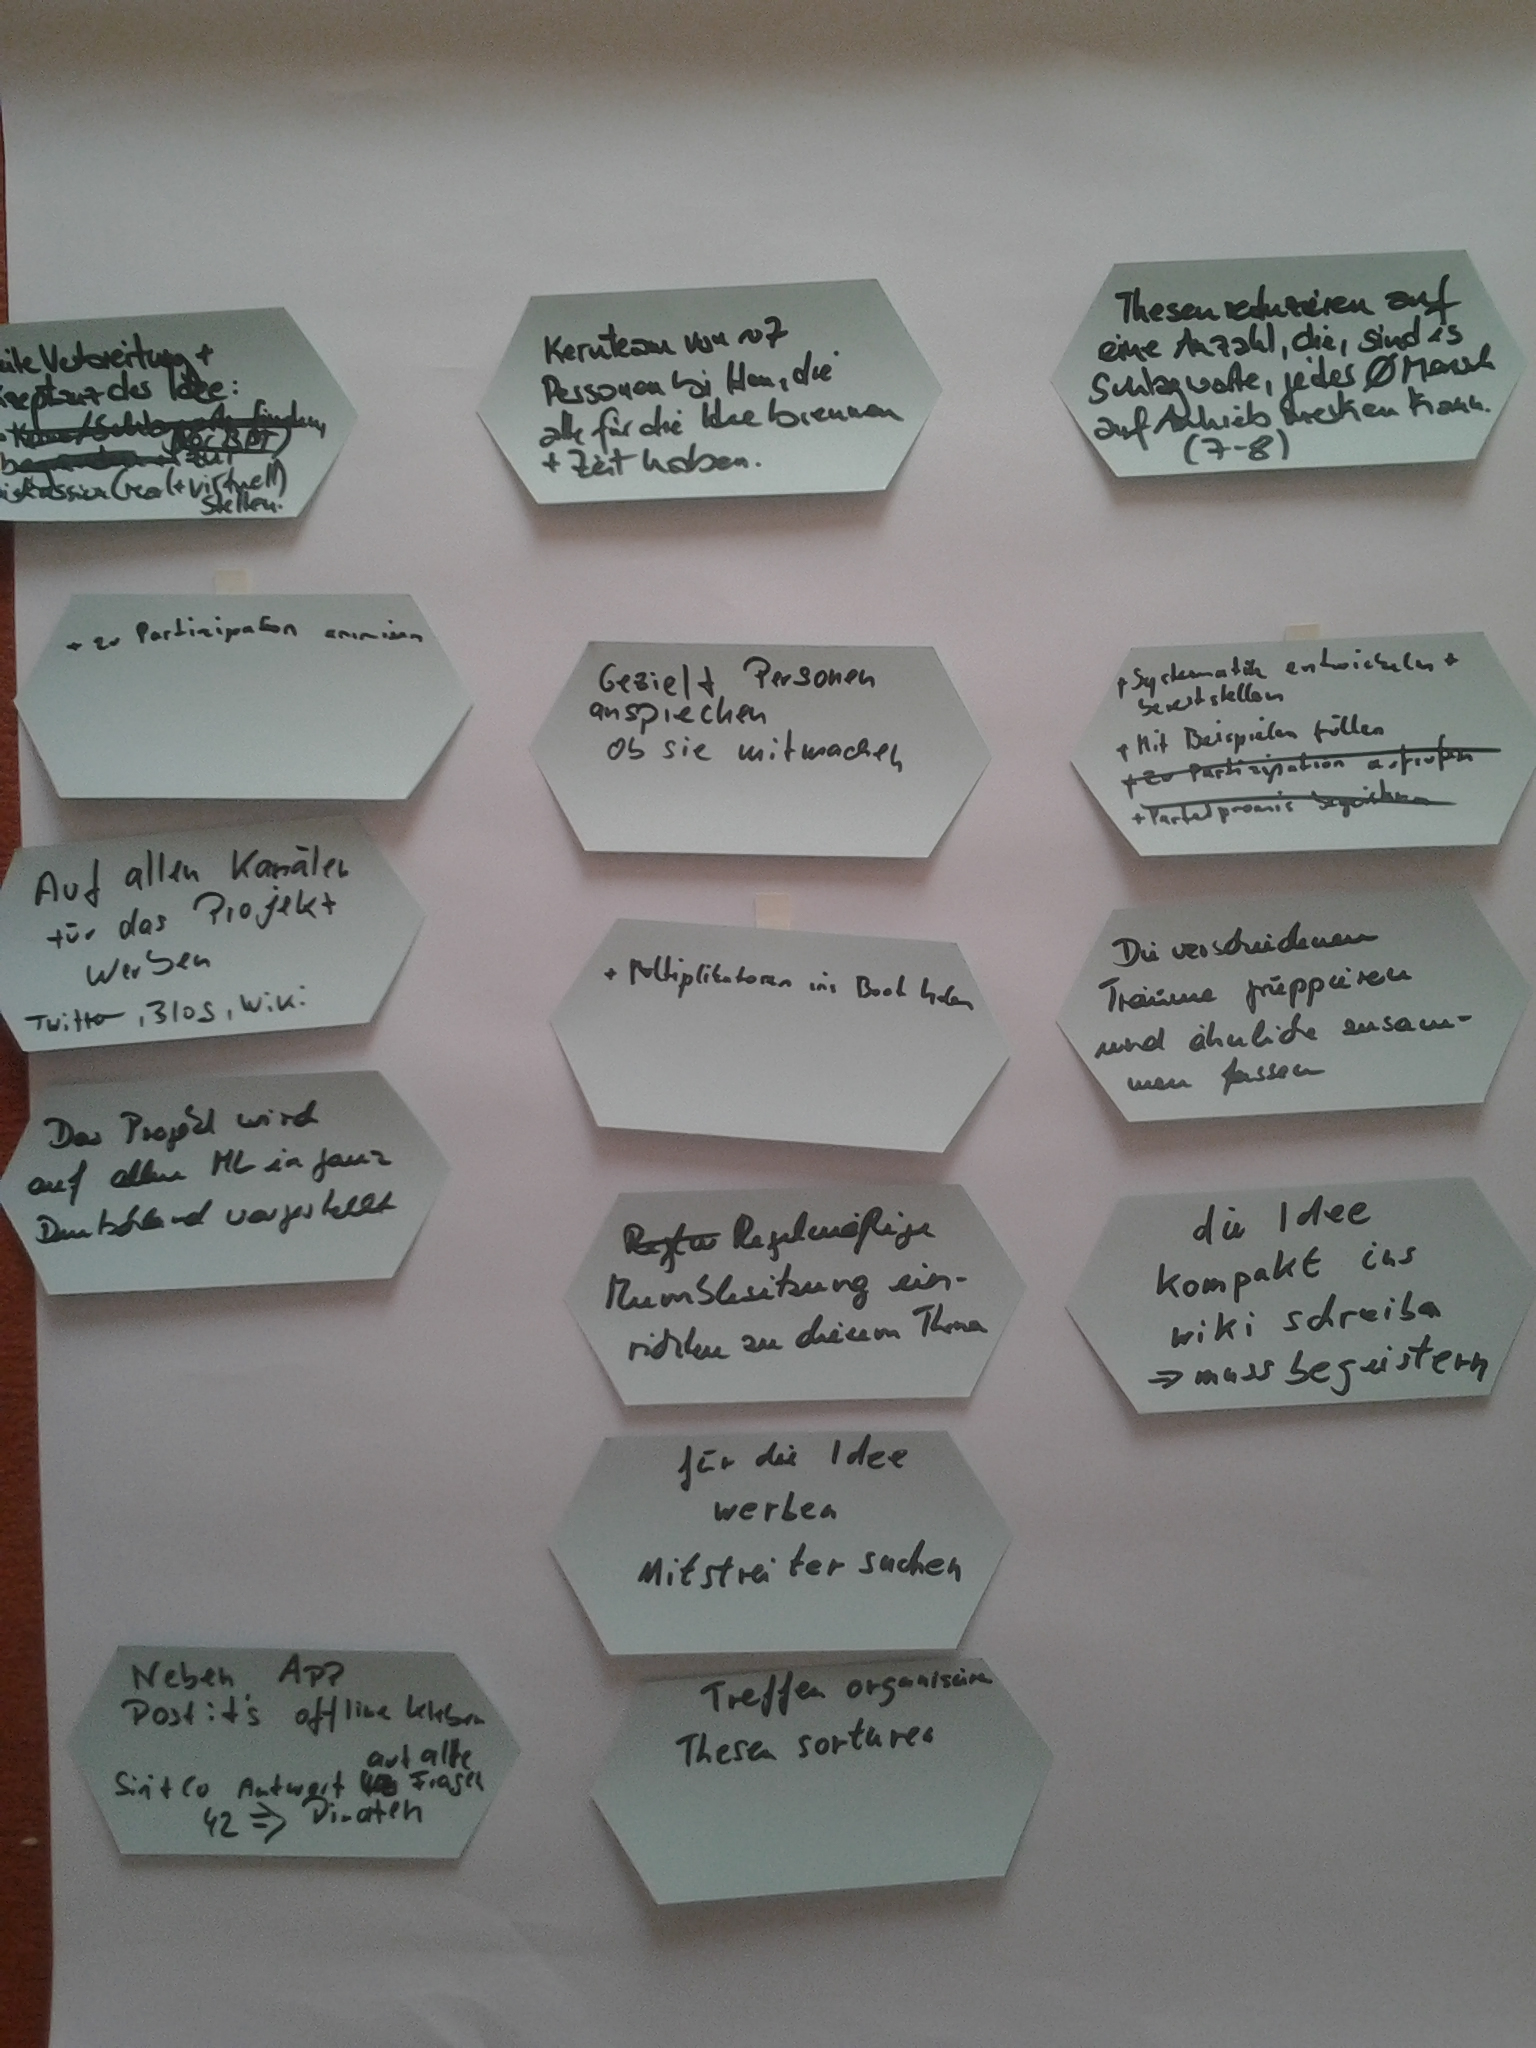 Verbreitung +
des Idee:
(vor BPT)
zur
(real + virtuell)
stellen.
+ zu Partizipation animieren
Auf allen Kanälen
für das Projekt
werben
Twitter, Blog, Wiki
Das Projekt wird
auf allen ML in ganz
Deutschland vorgestellt
Neben App
Postit's offline kleben
auf alle
Antwort Fragen
42 => Piraten
Kernteam von ~7
Personen die
alle für die Idee brennen
+ Zeit haben.
Gezielt Personen
ansprechen
ob sie mitmachen
+ Multiplikatoren ins Boot holen
Regelmäßige
Mumblesitzung ein-
richten zu diesem Thema
für die Idee
werben
Mitstreiter suchen
Treffen organisieren
Thesen sortieren
Thesen reduzieren auf
eine Anzahl, die, sind es
Schlagworte, jedes Ø Mensch
auf Anhieb merken kann.
(7-8)
+ Systematik entwickeln +
bereitstellen
+ Mit Beispielen füllen
+ zu Partizipation aufrufen
Die verschiedenen
Träume gruppieren
und ähnliche zusam-
men fassen
die Idee
kompakt ins
wiki schreiben
=> muss begeistern